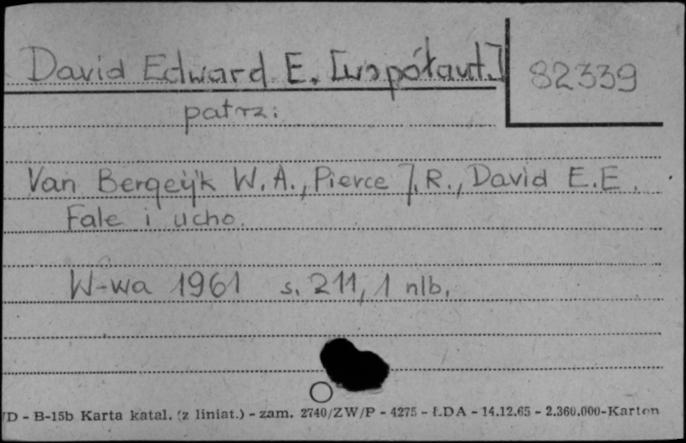 David Edward E. [współaut.] 82339
patrz:
Van Bergeijk W. A., Pierce J. R., David E. E.
Fale i ucho.
W-wa 1961 s. 211, 1 nlb.
/D - B-15b Karta katal. (z liniat.) - zam. 2740/ZW/P - 4275 - ŁDA - 14.12.65 - 2.360.000-Karton